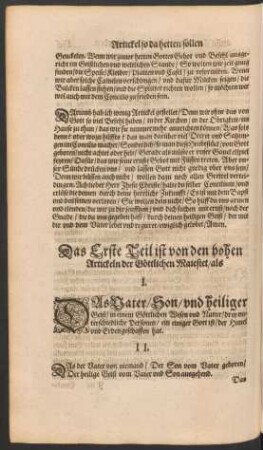 Artickel so da hetten sollen
Geuckelen. Wenn wir zuuor hetten Gottes Gebot vnd Befehl ausge-
richt im Geistlichen vnd weltlichen Stande / So wolten wir zeit gnug
finden / die Speise / Kleider / Platten vnd Casel / zu reformiren. Wenn
wir aber solche Camelen verschlingen / vnd dafür Mücken seigen / die
Balcken lassen stehen / vnd die Splitter richten wollen / so möchten wir
wol auch mit dem Concilio zu frieden sein.
DArumb hab ich wenig Artickel gestellet / Denn wir one das von
Gott so viel Befehl haben / in der Kirchen / in der Oberkeit / im
Hause zu thun / das wir sie nimmer mehr ausrichten können / Was sols
denn / oder wozu hilffts / das man darüber viel Decret vnd Satzung-
en im Concilio machet / Sonderlich so man diese Heubtstück / von Gott
geboten / nicht achtet noch helt / Gerade als müste er vnser
feyren / dafür / das wir seine ernste Gebot mit Füssen treten. Aber vnser
Sünde drücken vns / vnd lassen Gott nicht gnedig vber vns sein /
Denn wir büssen auch nicht / wollen dazu noch allen Grewel vertei-
dingen. Ach lieber Herr Jhesu Christe / halte du selber Concilium / vnd er-
löse die deinen durch deine herrliche Zukunfft / Es ist mit dem Bapst
vnd den seinen verloren / Sie wöllen dein nicht / So hilff du vns armen
vnd elenden / die wir zu dir seufftzen / vnd dich suchen mit ernst / nach der
Gnade / die du vns gegeben hast / durch deinen heiligen Geist / der mit
dir vnd dem Vater lebet vnd regieret / ewiglich gelobet / Amen.
Das Erste Teil ist von den hohen
Artickeln der Göttlichen Maiestet / als
I.
DAs Vater / Son / vnd heiliger
Geist / in einem Göttlichen Wesen vnd Natur / drey vn-
terschiedliche Personen / ein einiger Gott ist / der Himel
vnd Erden geschaffen hat.
II.
DAs der Vater von niemand / Der Son vom Vater geboren /
Der heilige Geist vom Vater vnd Son ausgehend.
Das